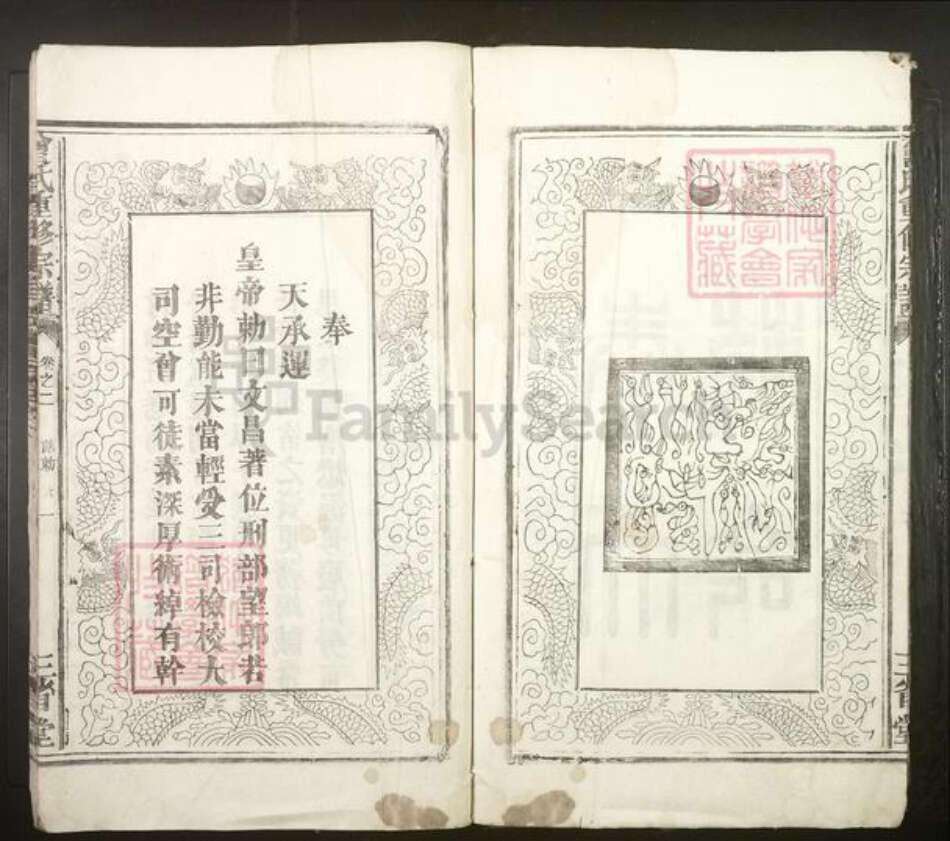 奉
天承運
皇帝勅曰文昌著位刑部望郎若
非勤能未當輕受三司檢校大
司空曾可徒素深厚術綽有幹
曾氏重修宗譜
卷之二
誥勅
一
三省堂
三省堂
FamilySearch